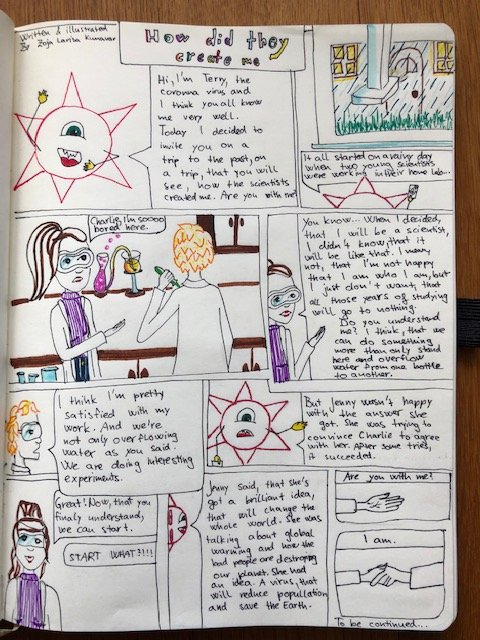 Written & illustrated
By Zoja Larisa Kunaver
How did they
create me
Hi, I'm Terry, the
coronna virus and
I think you all know
me very well.
Today I decided to
invite you on a
trip to the past, on
a trip, that you will
see, how the scientists
created me. Are you with me?
It all started on a rainy day
when two young scientists
were working in their home lab...
Charlie, I'm soooo
bored here.
You know... When I decided,
that I will be a scientist,
I didn't know, that it
will be like that. I mean,
not, that I'm not happy
that I am who I am, but
I just don't want, that
all those years of studying
will go to nothing.
Do you understand
me? I think, that we
can do something
more than only stand
here and overflow
water from one bottle
to another.
I think I'm pretty
satisfied with my
work. And we're
not only overflowing
water as you said.
We are doing interesting
experiments.
But Jenny wasn't happy
with the answer she
got. She was trying to
convince Charlie to agree
with her. After some tries,
it succeeded.
Great! Now, that you
finaly understand,
we can start.
START WHAT?!!!
Jenny said, that she's
got a brilliant idea,
that will change the
whole world. She was
talking about global
warming and how the
bad people are destroying
our planet. She had
an idea. A virus, that
will reduce popullation
and save the Earth.
Are you with me?
I am.
To be continued...